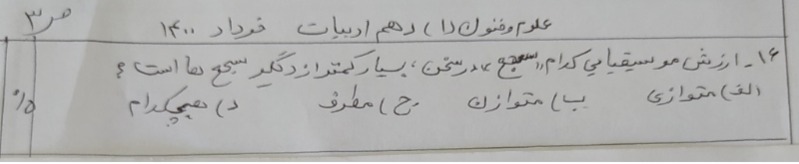 ص ۳
علوم و فنون (۱) دهم ادبیات خرداد ۱۴۰۰
۱۶- ارزش موسیقیایی کدام «سجع» در سخن، بسیار کمتر از دیگر سجع ها است؟
الف) متوازی ب) متوازن ج) مطرف د) هیچکدام
۰/۵